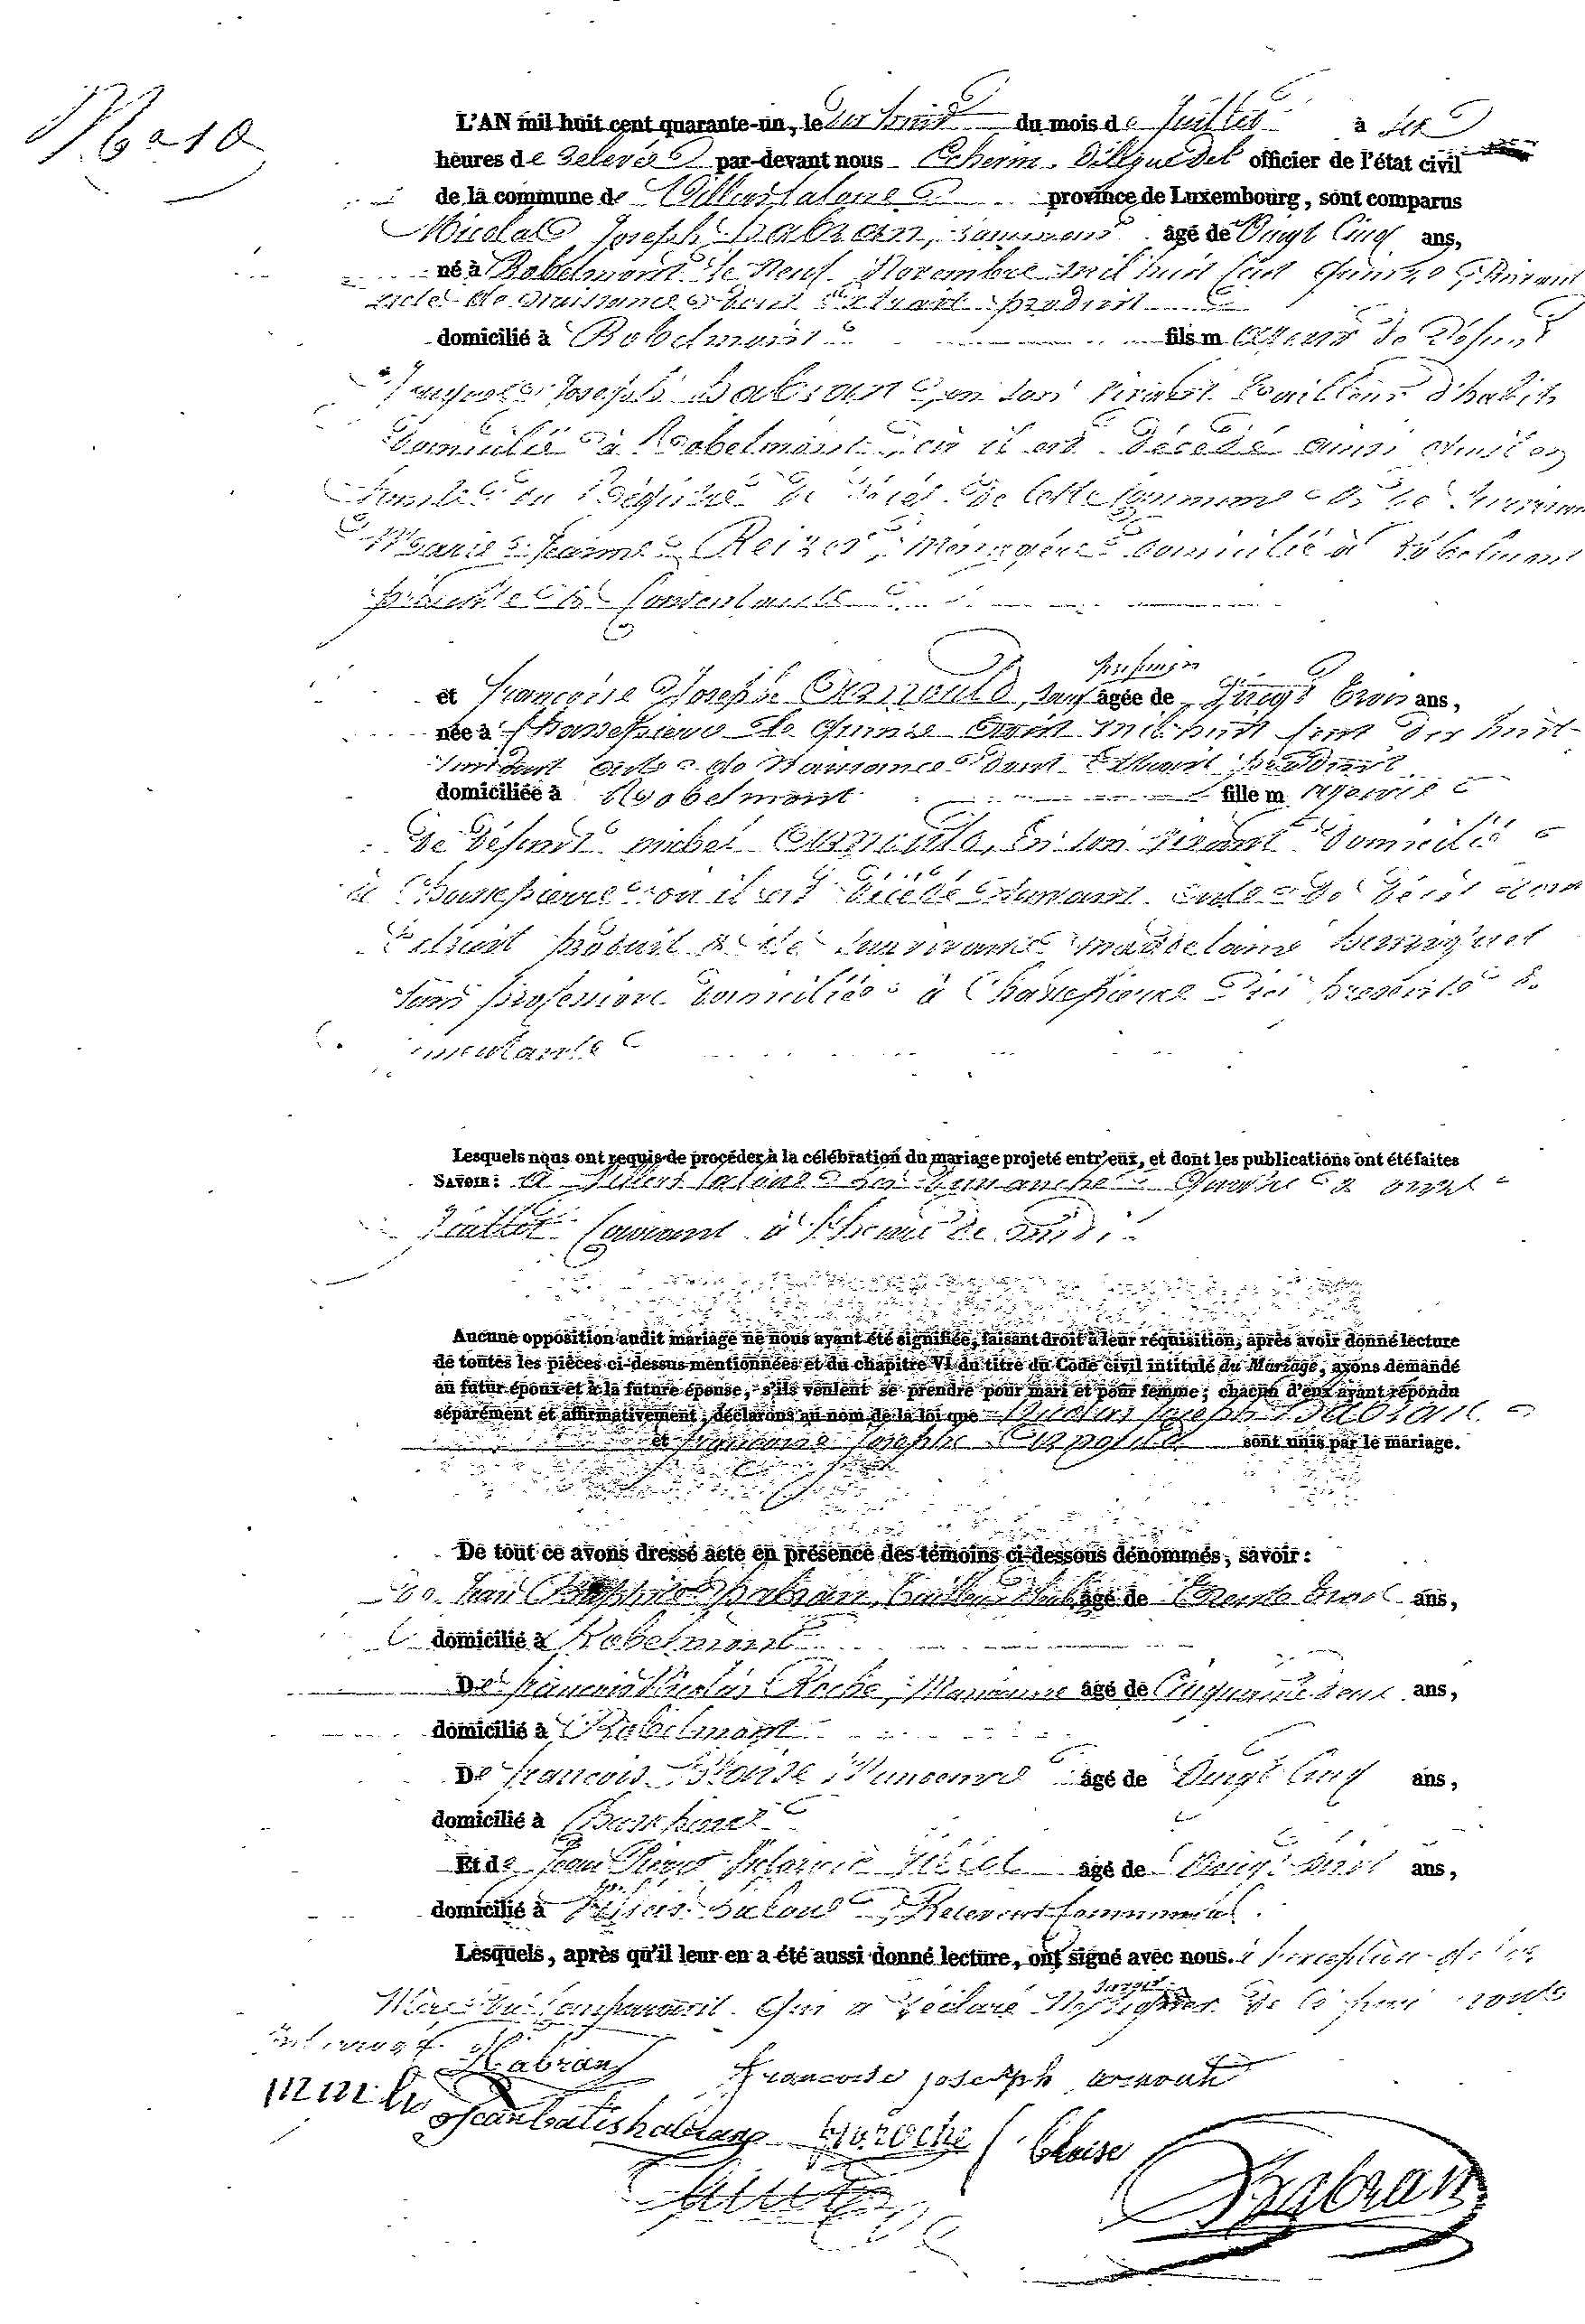 No 10
L'AN mil huit cent quarante-un, le du mois de Juillet à six
heures de relevée par-devant nous Echevin délégué officier de l'état civil
de la commune de Villers la loue province de Luxembourg, sont comparus
Nicolas Joseph habran, âgé de Vingt Cinq ans,
né à Robelmont le Neuf Novembre mil huit Cent quinze Suivant
acte de naissance dont Extrait produit
domicilié à Robelmont fils majeur de défunt
Jacques Joseph habran en son vivant tailleur d'habits
domicilié à Robelmont où il est décédé ainsi qu'il en
Conste au Régistre de décès de Cette Commune & de
Marie Jeanne Reizer, Ménagère domiciliée à Robelmont
présente & Consentante
profession
et françoise Josephe Arnould, sans âgée de Vingt trois ans,
née à Chassepierre le quinze août mil huit Cent dix huit
suivant acte de Naissance dont Extrait produit
domiciliée à Robelmont fille majeure
de défunt michel Arnould, En son vivant domicilié
à Chassepierre où il est décédé suivant acte de décès dont
Extrait produit & de survivante magdelaine henriquet
sans profession domiciliée à Chassepierre ici présente &
consentante
Lesquels nous ont requis de procéder à la célébration du mariage projeté entr'eux, et dont les publications ont été faites
SAVOIR: à Villers la loue les dimanches quatre & onze
Juillet Courant à l'heure de midi
Aucune opposition audit mariage ne nous ayant été signifiée, faisant droit à leur réquisition, après avoir donné lecture
de toutes les pièces ci-dessus mentionnées et du chapitre VI du titre du Code civil intitulé du Mariage, avons demandé
au futur époux et à la future épouse, s'ils veulent se prendre pour mari et pour femme; chacun d'eux ayant répondu
séparément et affirmativement, déclarons au nom de la loi que Nicolas Joseph habran
et françoise Josephe Arnould sont unis par le mariage.
De tout ce avons dressé acte en présence des témoins ci-dessous dénommés, savoir:
De Jean habran, tailleur d'habits âgé de trente trois ans,
domicilié à Robelmont
De francois Nicolas Roche, âgé de Cinquante deux ans,
domicilié à Robelmont
De francois Bloise âgé de Vingt Cinq ans,
domicilié à Chassepierre
Et de Jean Pierre âgé de Vingt ans,
domicilié à Villers la loue Receveur Communal
Lesquels, après qu'il leur en a été aussi donné lecture, ont signé avec nous. à l'exception de la
savoir
Mère du Comparant qui a déclaré Ne signer de ce
interpellé habran françoise joseph arnould
jean batis habran roche f. bloise
habran